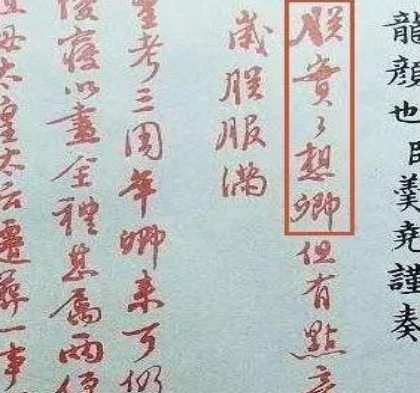 龍顏也臣羹堯謹奏
朕實〻想卿但有點
歲朕服滿
考三周年卿来可
陵寢以盡全禮甚屬兩
母太皇太后遷葬一事